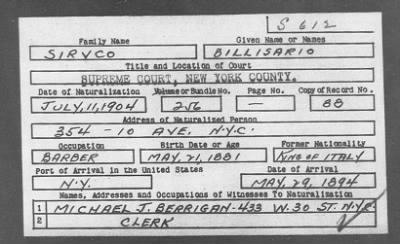 S 612
Family Name Given Name or Names
SIRVCO BILLISARIO
Title and Location of Court
SUPREME COURT, NEW YORK COUNTY.
Date of Naturalization Volume or Bundle No. Page No. Copy of Record No.
JULY, 11, 1904 256 — 88
Address of Naturalized Person
354 - 10 AVE. N.Y.C.
Occupation Birth Date or Age Former Nationality
BARBER MAY, 21, 1881 KING OF ITALY
Port of Arrival in the United States Date of Arrival
N.Y. MAY, 29, 1894
Names, Addresses and Occupations of Witnesses To Naturalization
1 MICHAEL J. BERRIGAN - 433 W. 30 ST. N.Y.C.
2 CLERK